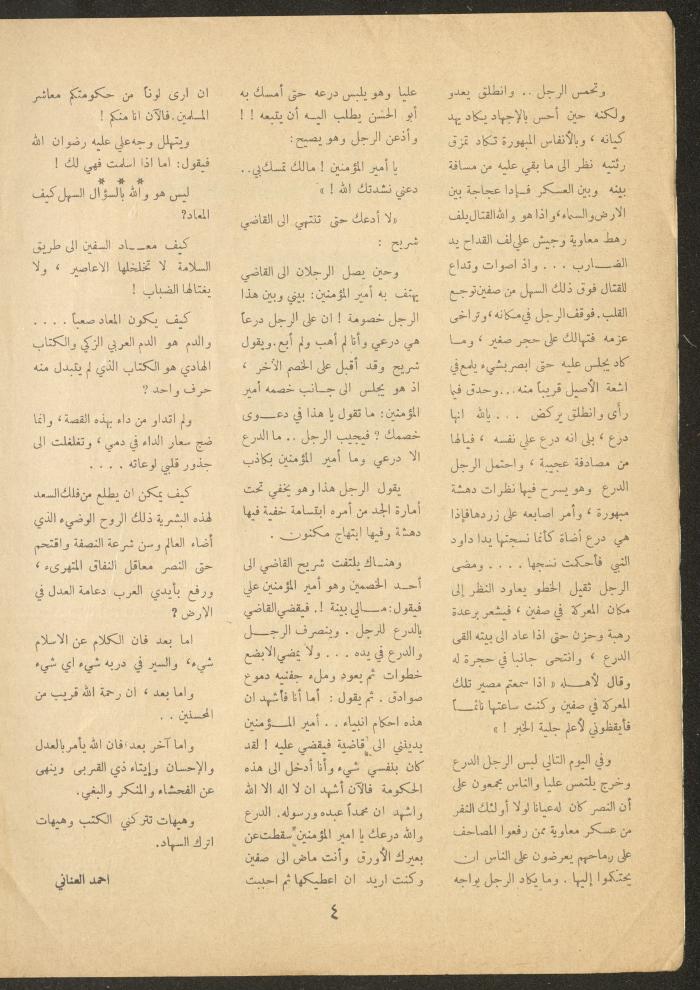 وتحمس الرجل .. وانطلق يعدو
ولكنه حين أحس بالإجهاد يكاد يهد
كيانه ، وبالأنفاس المبهورة تكاد تمزق
رئتيه نظر الى ما بقي عليه من مسافة
بينه وبين العسكر فإذا عجاجة بين
الارض والسماء، واذا هو والله القتال يلف
رهط معاوية وجيش علي لف القداح يد
الضارب ... واذ اصوات وتداع
للقتال فوق ذلك السهل من صفين توجع
القلب. فوقف الرجل في مكانه، وتراخى
عزمه فتهالك على حجر صغير ، وما
كاد يجلس عليه حتى ابصر بشيء يلمع في
اشعة الأصيل قريباً منه... وحدق فيما
رأى وانطلق يركض ... يالله انها
درع ، بلى انه درع علي نفسه ، فيالها
من مصادفة عجيبة ، واحتمل الرجل
الدرع وهو يسرح فيها نظرات دهشة
مبهورة ، وأمر اصابعه على زردها فإذا
هي درع أضاة كأنما نسجتها يدا داود
النبي فأحكمت نسجها .... ومضى
الرجل ثقيل الخطو يعاود النظر إلى
مكان المعركة في صفين ، فيشعر برعدة
رهبة وحزن حتى اذا عاد الى بيته القى
الدرع ، وانتحى جانبا في حجرة له
وقال لأهله « اذا سمعتم مصير تلك
المعركة في صفين وكنت ساعتها نائماً
فأيقظوني لأعلم جلية الخبر ! »
وفي اليوم التالي لبس الرجل الدرع
وخرج يلتمس عليا والناس مجمعون على
أن النصر كان له عيانا لولا أولئك النفر
من عسكر معاوية ممن رفعوا المصاحف
على رماحهم يعرضون على الناس ان
يحتكموا إليها . وما يكاد الرجل يواجه
عليا وهو يلبس درعه حتى أمسك به
أبو الحسن يطلب اليه أن يتبعه ! !
وأذعن الرجل وهو يصيح:
يا أمير المؤمنين ! مالك تمسك بي..
دعني نشدتك الله ! »
«لا أدعك حتى تنتهي الى القاضي
شريح :
وحين يصل الرجلان الى القاضي
يهتف به أمير المؤمنين: بيني وبين هذا
الرجل خصومة ! ان على الرجل درعاً
هي درعي وأنا لم أهب ولم أبع. ويقول
شريح وقد أقبل على الخصم الآخر ،
اذ هو يجلس الى جانب خصمه أمير
المؤمنين: ما تقول يا هذا في دعوى
خصمك ؟ فيجيب الرجل .. ما الدرع
الا درعي وما أمير المؤمنين بكاذب
يقول الرجل هذا وهو يخفي تحت
أمارة الجد من أمره ابتسامة خفية فيها
دهشة وفيها ابتهاج مكنون .
وهناك يلتفت شريح القاضي الى
أحد الخصمين وهو أمير المؤمنين علي
فيقول: مالي بينة !. فيقضي القاضي
بالدرع للرجل . وينصرف الرجل
والدرع في يده ... ولا يمضي الا بضع
خطوات ثم يعود وملء جفنيه دموع
صوادق . ثم يقول : أما أنا فأشهد ان
هذه احكام انبياء .. أمير المؤمنين
يدينني الى قاضية فيقضي عليه ! لقد
كان بنفسي شيء وأنا أدخل الى هذه
الحكومة فالآن أشهد ان لا اله الا الله
واشهد ان محمداً عبده ورسوله. الدرع
والله درعك يا امير المؤمنين سقطت عن
بعيرك الأورق وأنت ماض الى صفين
وكنت اريد ان اعطيكها ثم احببت
ان ارى لوناً من حكومتكم معاشر
المسلمين. فالآن انا منكم !
ويتهلل وجه علي عليه رضوان الله
فيقول: اما اذا اسلمت فهي لك !
* * *
ليس هو والله بالسؤال السهل كيف
المعاد؟
كيف معاد السفين الى طريق
السلامة لا تخلخلها الاعاصير ، ولا
يغتالها الضباب !
كيف يكون المعاد صعباً ....
والدم هو الدم العربي الزكي والكتاب
الهادي هو الكتاب الذي لم يتبدل منه
حرف واحد ؟
ولم اتدار من داء بهذه القصة، وانما
ضج سعار الداء في دمي، وتغلغلت الى
جذور قلبي لوعاته ....
كيف يمكن ان يطلع من فلك السعد
لهذه البشرية ذلك الروح الوضيء الذي
أضاء العالم وسن شرعة النصفة واقتحم
حتى النصر معاقل النفاق المتهريء،
ورفع بأيدي العرب دعامة العدل في
الارض ؟
اما بعد فان الكلام عن الاسلام
شيء، والسير في دربه شيء اي شيء
واما بعد ، ان رحمة الله قريب من
المحسنين ..
واما آخر بعد ، فان الله يأمر بالعدل
والإحسان وإيتاء ذي القربى وينهى
عن الفحشاء والمنكر والبغي.
وهيهات تتركني الكتب وهيهات
اترك السهاد.
احمد العناني
٤